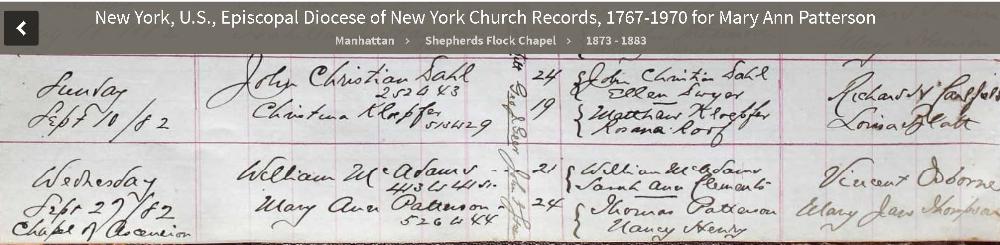 New York, U.S., Episcopal Diocese of New York Church Records, 1767-1970 for Mary Ann Patterson
Manhattan > Shepherds Flock Chapel > 1873 - 1883
Sunday
Sept 10/82
John Christian Dahl
252 W 43
Christina Kloepffer
513 W 29
24
19
John Christian Dahl
Ellen Dwyer
Matthew Kloepffer
Rosana Roof
Richard N
Louisa Platt
Wednesday
Sept 27/82
Chapel of Ascension
William McAdams
413 W 41 St.
Mary Ann Patterson
526 W 44
21
24
William McAdams
Sarah Ann Clements
Thomas Patterson
Nancy Henry
Vincent Osborne
Mary Jane Thompson